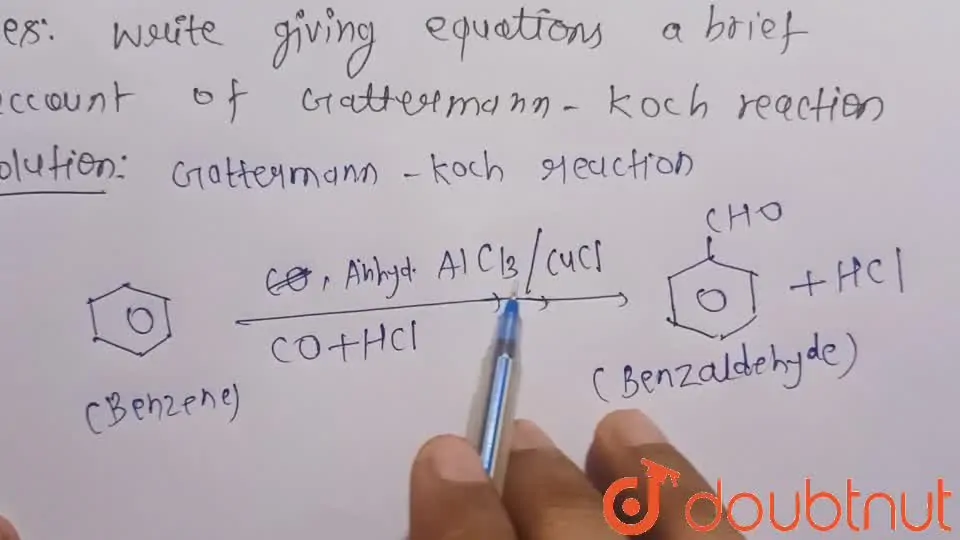 es: Write giving equations a brief
ccount of Gattermann - Koch reaction
olution: Gattermann - Koch reaction
CHO
, Anhyd. AlCl3/CuCl
+ HCl
CO+HCl
(Benzene)
(Benzaldehyde)
doubtnut